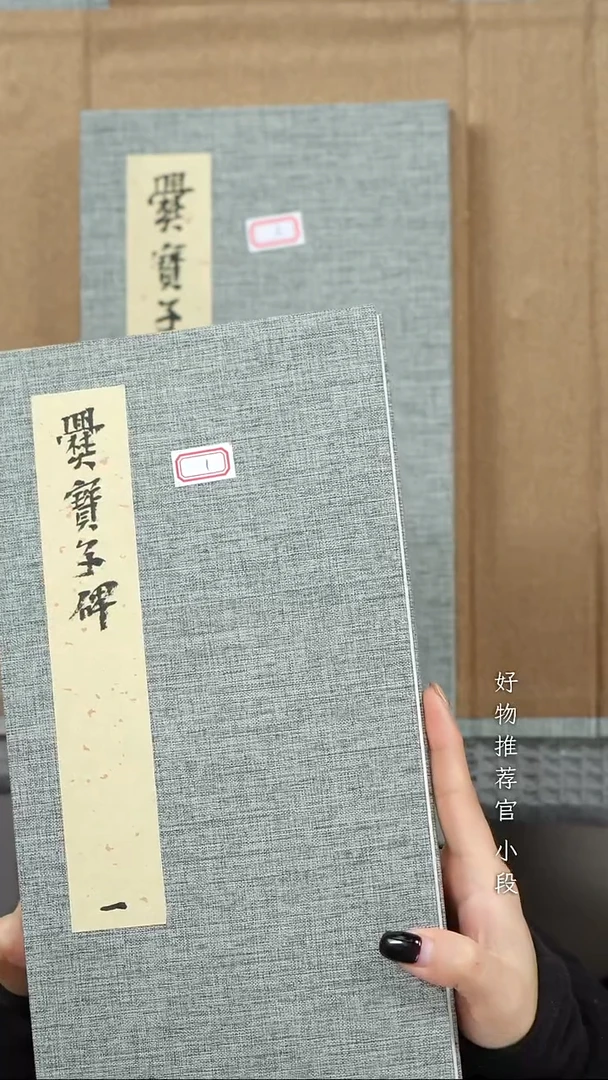 爨寶子
爨寶子碑
一
1
好物推荐官 小段